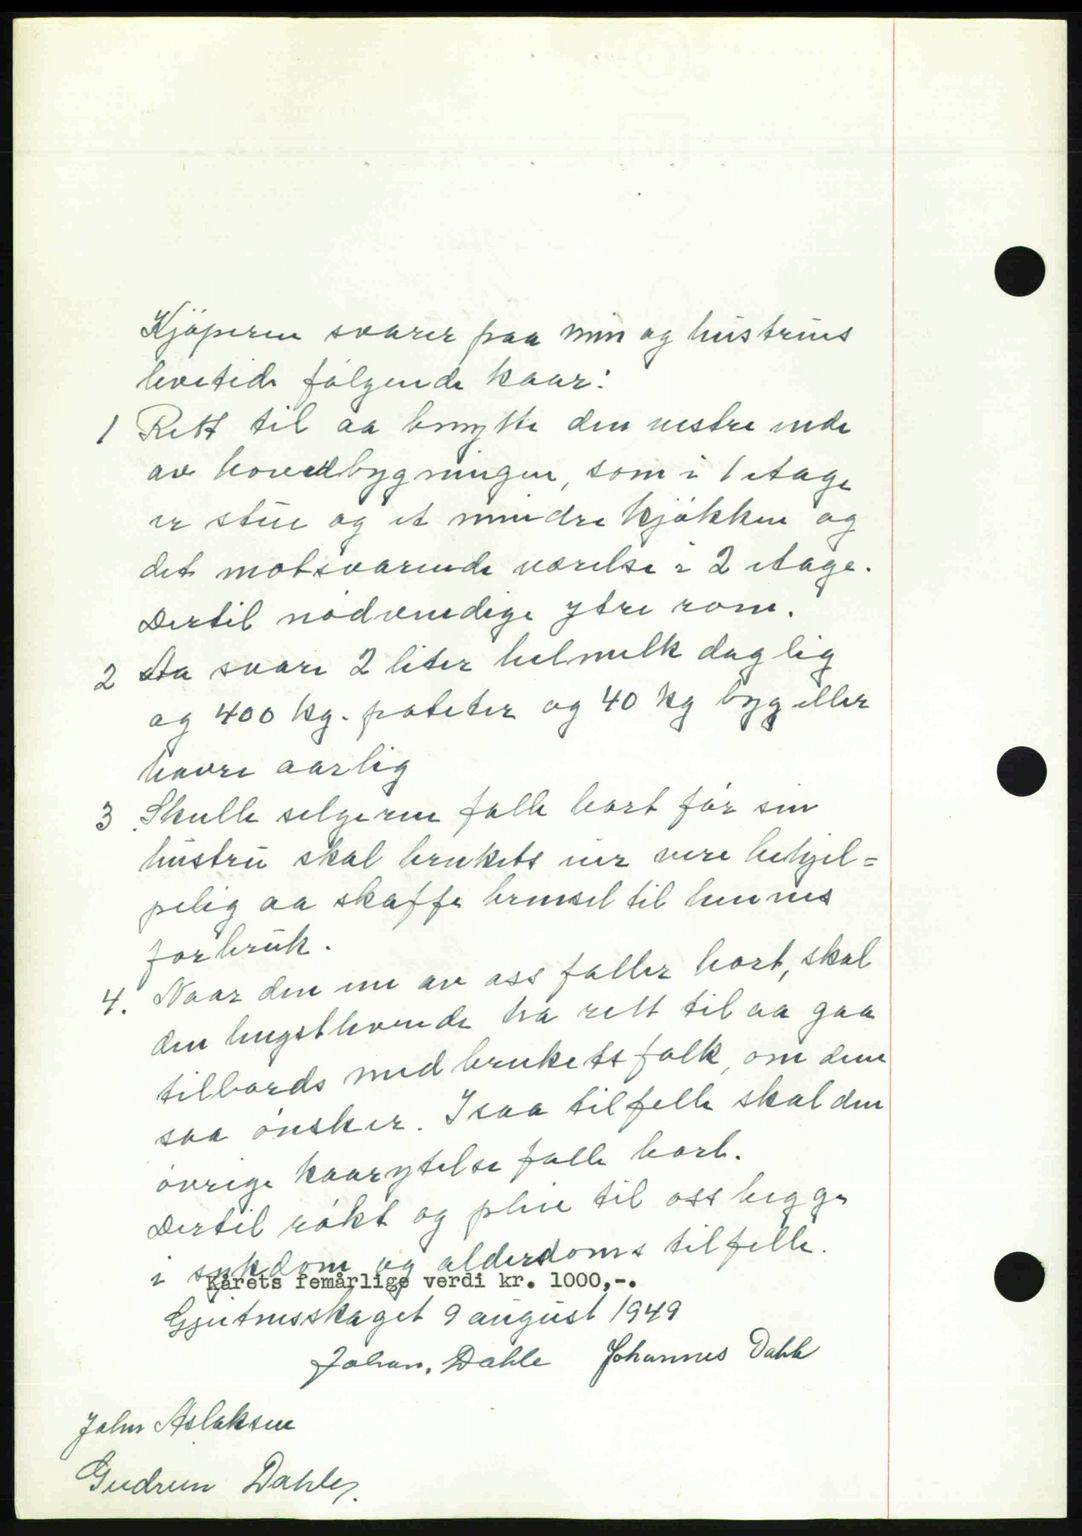 Kjøperen svarer paa min og hustrus
levetid følgende kaar:
1 Rett til aa benytte den vestre ende
av hovedbygningen, som i 1 etage
er stue og et mindre kjøkken og
det motsvarende værelse i 2 etage.
Dertil nødvendige ytre rom.
2 Aa svare 2 liter helmelk daglig
og 400 kg. poteter og 40 kg byg eller
havre aarlig
3 Skulle selgeren falle bort før sin
hustru skal brukets eier være behjel=
pelig aa skaffe brensel til hennes
forbruk.
4. Naar den ene av oss faller bort, skal
den lengstlevende ha rett til aa gaa
tilbords med bruketsfolk, om denne
saa ønsker. I saa tilfelle skal den
øvrige kaarytelse falle bort.
Dertil røkt og pleie til oss begge
i sykdom og alderdoms tilfelle.
Kårets femårlige verdi kr. 1000,-.
Gjeitnesskaget 9 august 1949
Johan. Dahle Johannes Dahle
John Aslaksen
Gudrun Dahle.